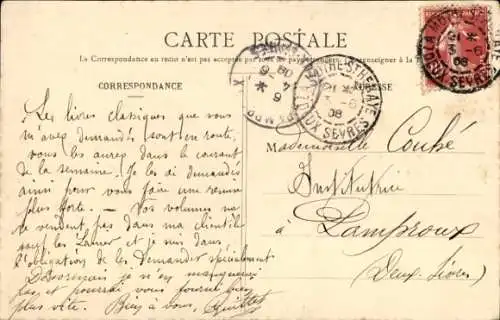 CARTE POSTALE
La Correspondance au recto n'est pas acceptée par tous les pays étrangers. (Se renseigner à la Poste)
CORRESPONDANCE
ADRESSE
LA MOTHE ST HERAYE
DEUX SEVRES
21 * 3-6 08
LA MOTHE ST HERAYE
21 * 3-6 08
DEUX SEVRES
Les livres classiques que vous
m'avez demandés sont en route,
vous les aurez dans le courant
de la semaine. Je les ai demandés
ainsi pour vous faire une remise
plus forte. — Vos volumes ne
se vendent pas dans ma clientèle
sauf les Larive et je suis dans
l'obligation de les demander spécialement
Désormais je n'y manquerai
pas et pourrai vous fournir bien
plus vite. Bien à vous,
Mademoiselle Couhé
Institutrice
à Pamproux
(Deux-Sèvres)